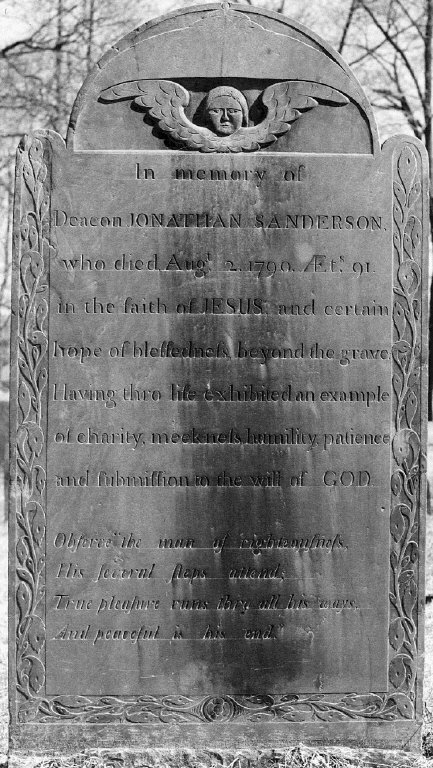 In memory of
Deacon JONATHAN SANDERSON,
who died Augᵗ 2. 1790. Ætˢ 91.
in the faith of JESUS, and certain
hope of bleſſedneſs beyond the grave.
Having thro life exhibited an example
of charity, meekneſs humility, patience
and ſubmiſſion to the will of GOD
Obſerve the man of righteouſneſs,
His ſeveral ſteps attend;
True pleaſure runs thro all his ways,
And peaceful is his end.